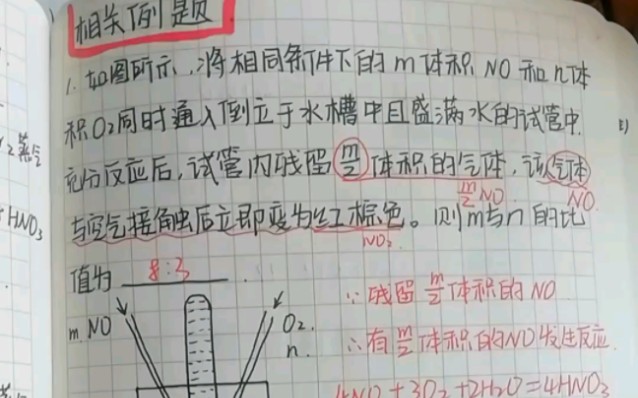 相关例题
1. 如图所示,将相同条件下的 m 体积 NO 和 n 体
积O₂同时通入倒立于水槽中且盛满水的试管中.
充分反应后,试管内残留 m/2 体积的气体,该气体
m/2 NO NO.
与空气接触后立即变为红棕色。则m与n的比
NO₂
值为 8:3
∵残留 m/2 体积的 NO
m NO
O₂.
n.
∴有 m/2 体积的NO发生反应.
4NO+3O₂+2H₂O=4HNO₃
HNO₃